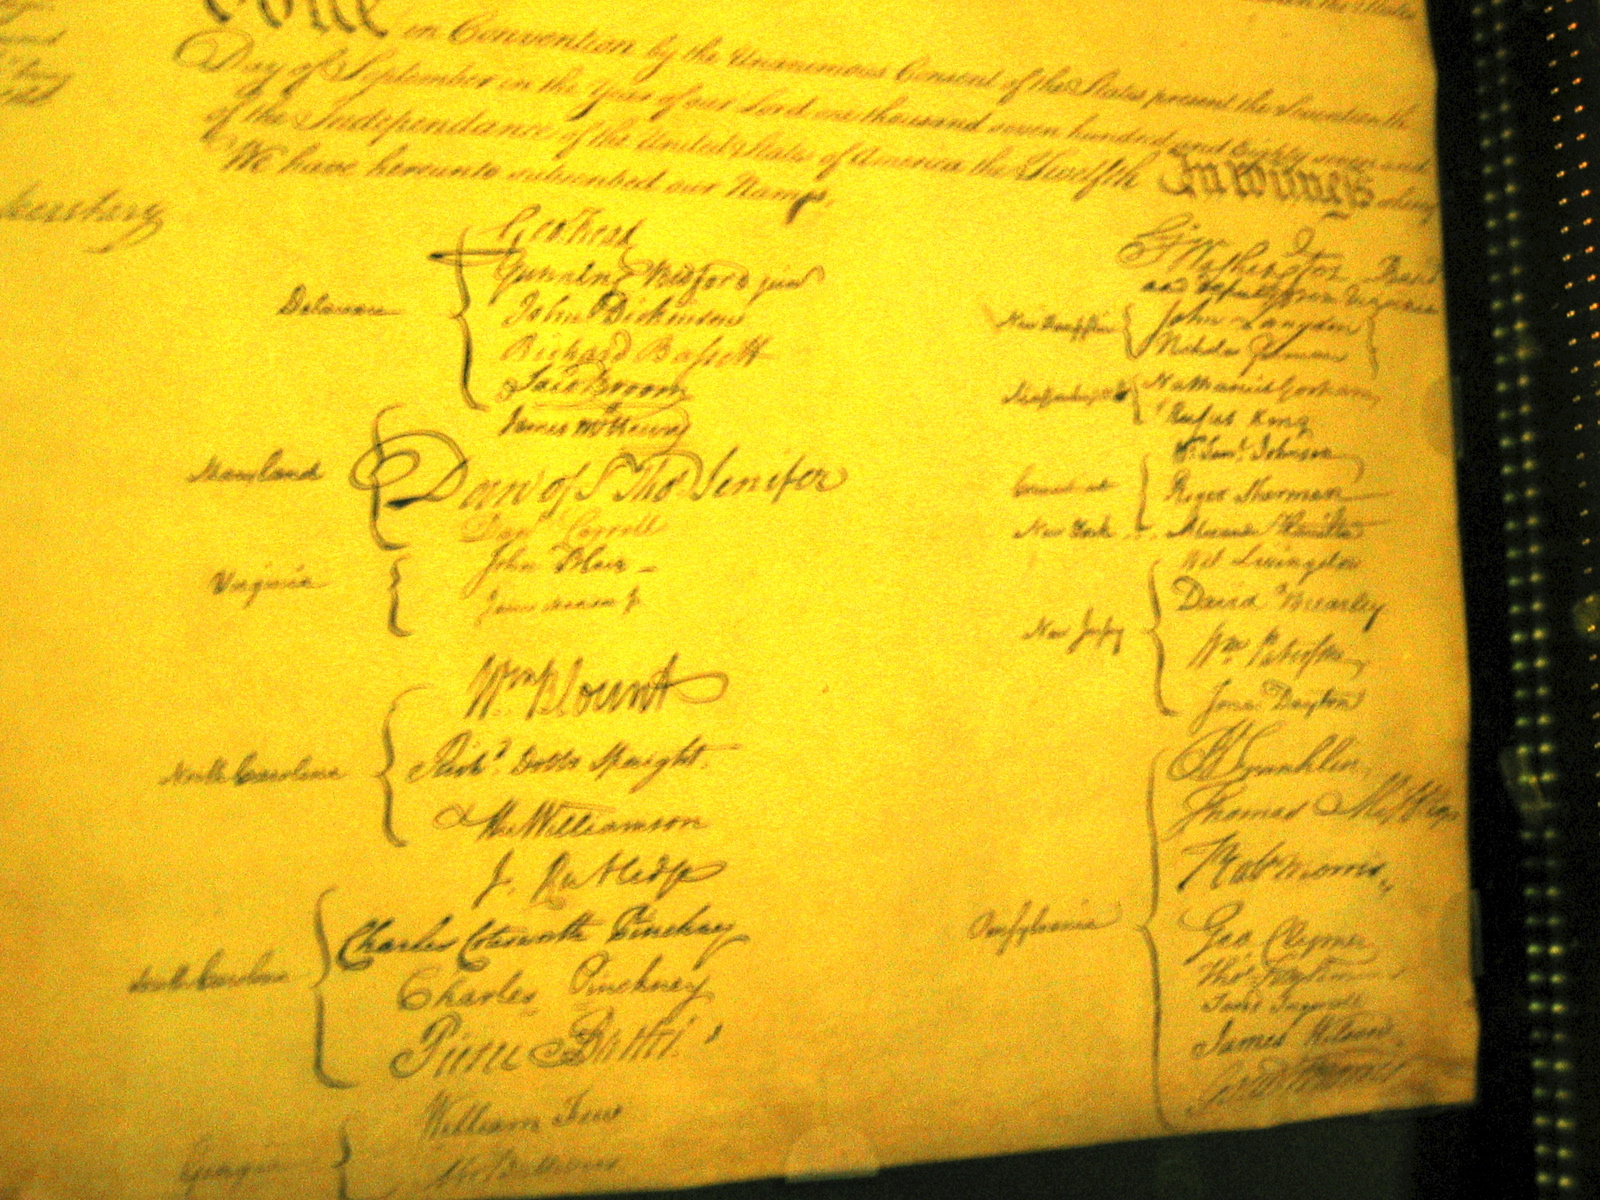 Done in Convention by the Unanimous Consent of the States present the Seventeenth
Day of September in the Year of our Lord one thousand seven hundred and Eighty seven and
of the Independance of the United States of America the Twelfth In Witness whereof
We have hereunto subscribed our Names,
Delaware
Geo: Read
Gunning Bedford jun
John Dickinson
Richard Bassett
Jaco: Broom
Maryland
James McHenry
Dan of St Thos. Jenifer
Danl Carroll
Virginia
John Blair —
James Madison Jr.
North Carolina
Wm. Blount
Richd. Dobbs Spaight.
Hu Williamson
South Carolina
J. Rutledge
Charles Cotesworth Pinckney
Charles Pinckney
Pierce Butler
Georgia
William Few
Abr Baldwin
Go. Washington Presidt
and deputy from Virginia
New Hampshire
John Langdon
Nicholas Gilman
Massachusetts
Nathaniel Gorham
Rufus King
Connecticut
Wm. Saml. Johnson
Roger Sherman
New York
Alexander Hamilton
New Jersey
Wil: Livingston
David Brearley
Wm. Paterson
Jona: Dayton
Pensylvania
B Franklin
Thomas Mifflin
Robt Morris
Geo. Clymer
Thos. FitzSimons
Jared Ingersoll
James Wilson
Gouv Morris